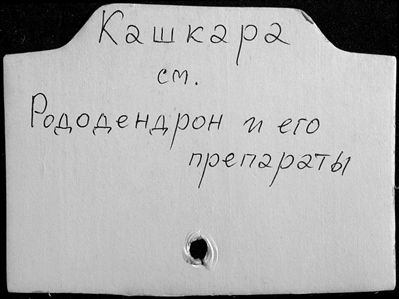 Кашкара
см.
Рододендрон и его
препараты